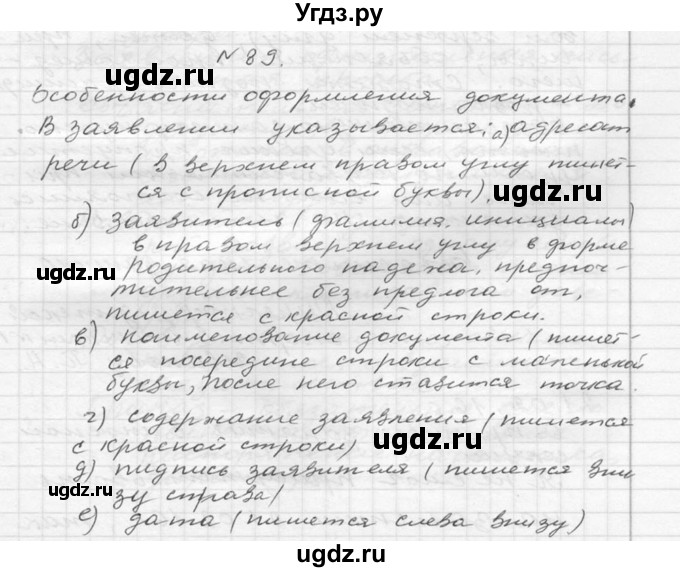 Угдз.ру
N 89.
ugdz.ru
ugdz.ru
Особенности оформления документа.
В заявлении указывается: а) адресат
речи (в верхнем правом углу пишет-
ся с прописной буквы),
ugdz.ru
б) заявитель (фамилия, инициалы)
в правом верхнем углу в форме
ugdz.ru
родительного падежа, предпоч-
тительнее без предлога от,
ugdz.ru
пишется с красной строки.
в) наименование документа (пишет-
ся посередине строки с маленькой
буквы, после него ставится точка.
г) содержание заявления (пишется
с красной строки)
ugdz.ru
д) пидпись заявителя (пишется вни-
зу справа)
ugdz.ru
е) дата (пишется слева внизу)
ugdz.ru
ugdz.ru